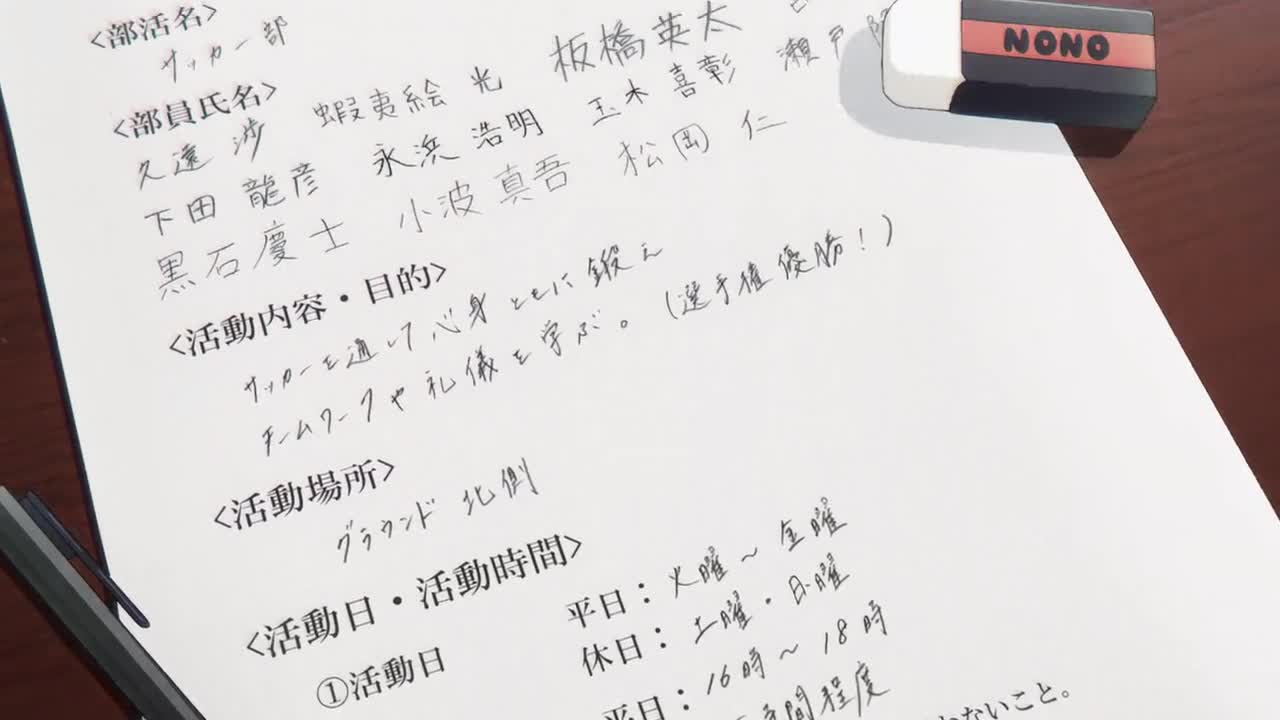 <部活名>
サッカー部
<部員氏名>
久遠 渉 蝦夷絵 光 板橋英太
下田 龍彦 永浜 浩明 玉木 喜彰 瀬戸
黒石慶士 小波 真吾 松岡 仁
<活動内容・目的>
サッカーを通して心身ともに鍛え
チームワークや礼儀を学ぶ。(選手権優勝!)
<活動場所>
グラウンド 北側
<活動日・活動時間>
①活動日 平日: 火曜~金曜
休日: 土曜・日曜
平日: 16時~18時
時間程度
ないこと。
NONO